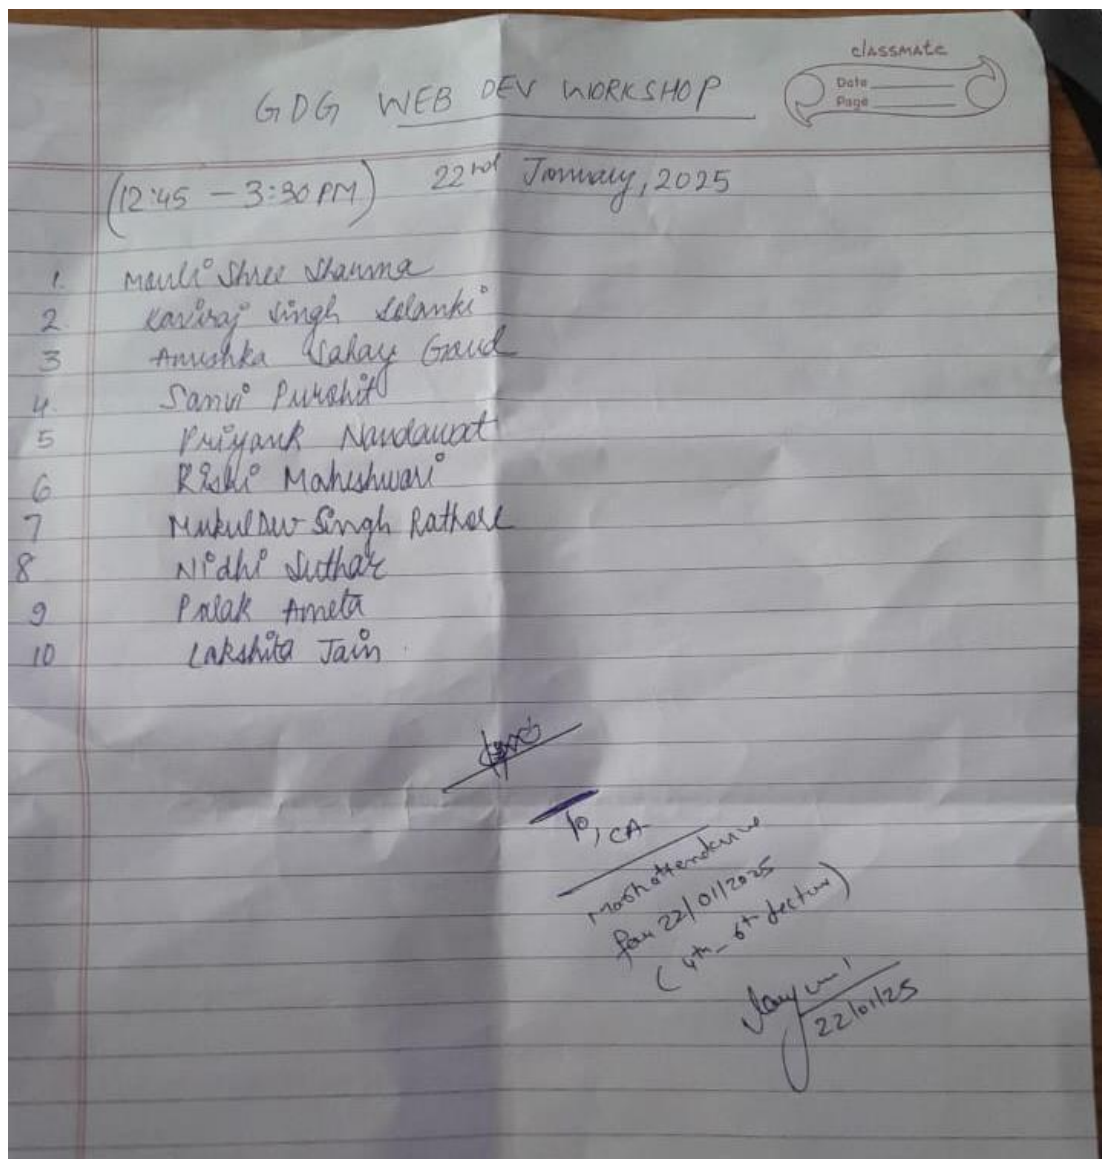 classmate
Date
Page
GDG WEB DEV WORKSHOP
(12:45 – 3:30 PM) 22nd January, 2025
1. Mauli Shree Sharma
2. Kaviraj Singh Solanki
3 Anushka Sahay Gaud
4. Sanvi Purohit
5 Priyank Nandawat
6 Rishi Maheshwari
7 MukulDev Singh Rathore
8 Nidhi Suthar
9 Palak Ameta
10 Lakshita Jain
To, CA
Mark attendance
for 22/01/2025
(4th – 6th lecture)
22/01/25